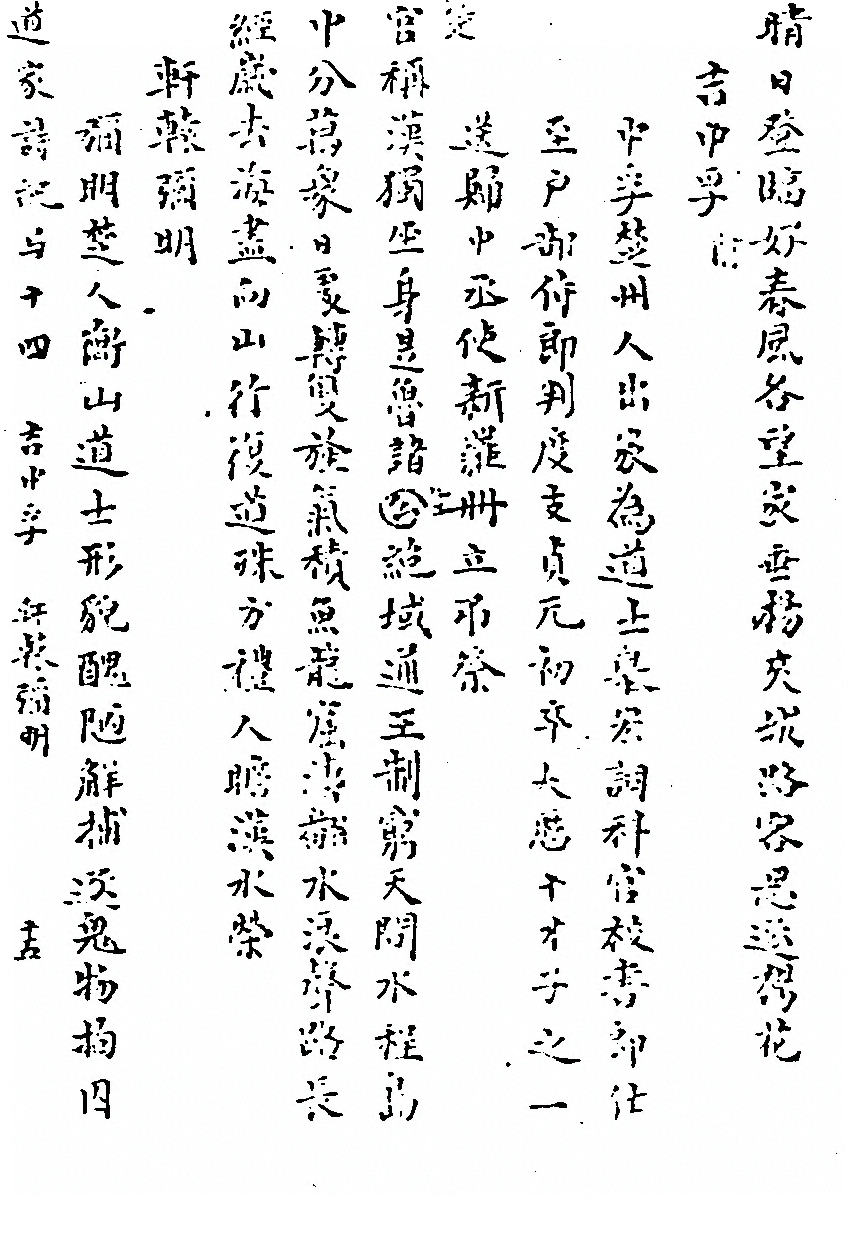 晴日登臨好春風各望家垂楊夾城路客思逐楊花
吉中孚
中孚楚州人出家為道士舉宏詞科官校書郎仕
至戶部侍郎判度支貞元初卒大歷十才子之一
送歸中丞使新羅冊立吊祭
官稱漢獨坐身是魯諸公絕域通王制窮天問水程島
中分萬象日處轉雙旌氣積魚龍窟濤翻水浪聲路長
經歲去海盡向山行復道殊方禮人瞻漢水榮
軒轅彌明
彌明楚人衡山道士形貌醜陋解捕逐鬼物拘囚
道家詩紀卷十四 吉中孚 軒轅彌明